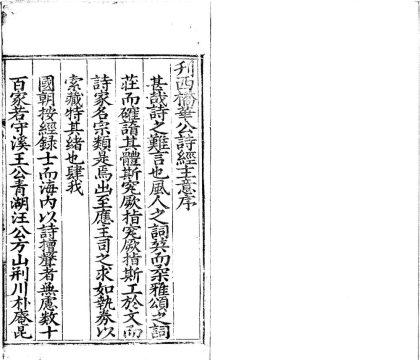 刋西橋華公詩經主意序
甚哉詩之難言也風人之詞而柔雅頌之詞
莊而確諳其體斯究厥指究厥指斯工於文而
詩家名宗類是焉出至應主司之求如執券以
索藏特其緒也肆我
國朝按經録士而海内以詩擅聲者無慮數十
百家若守溪王公青湖汪公方山荆川朴菴昆